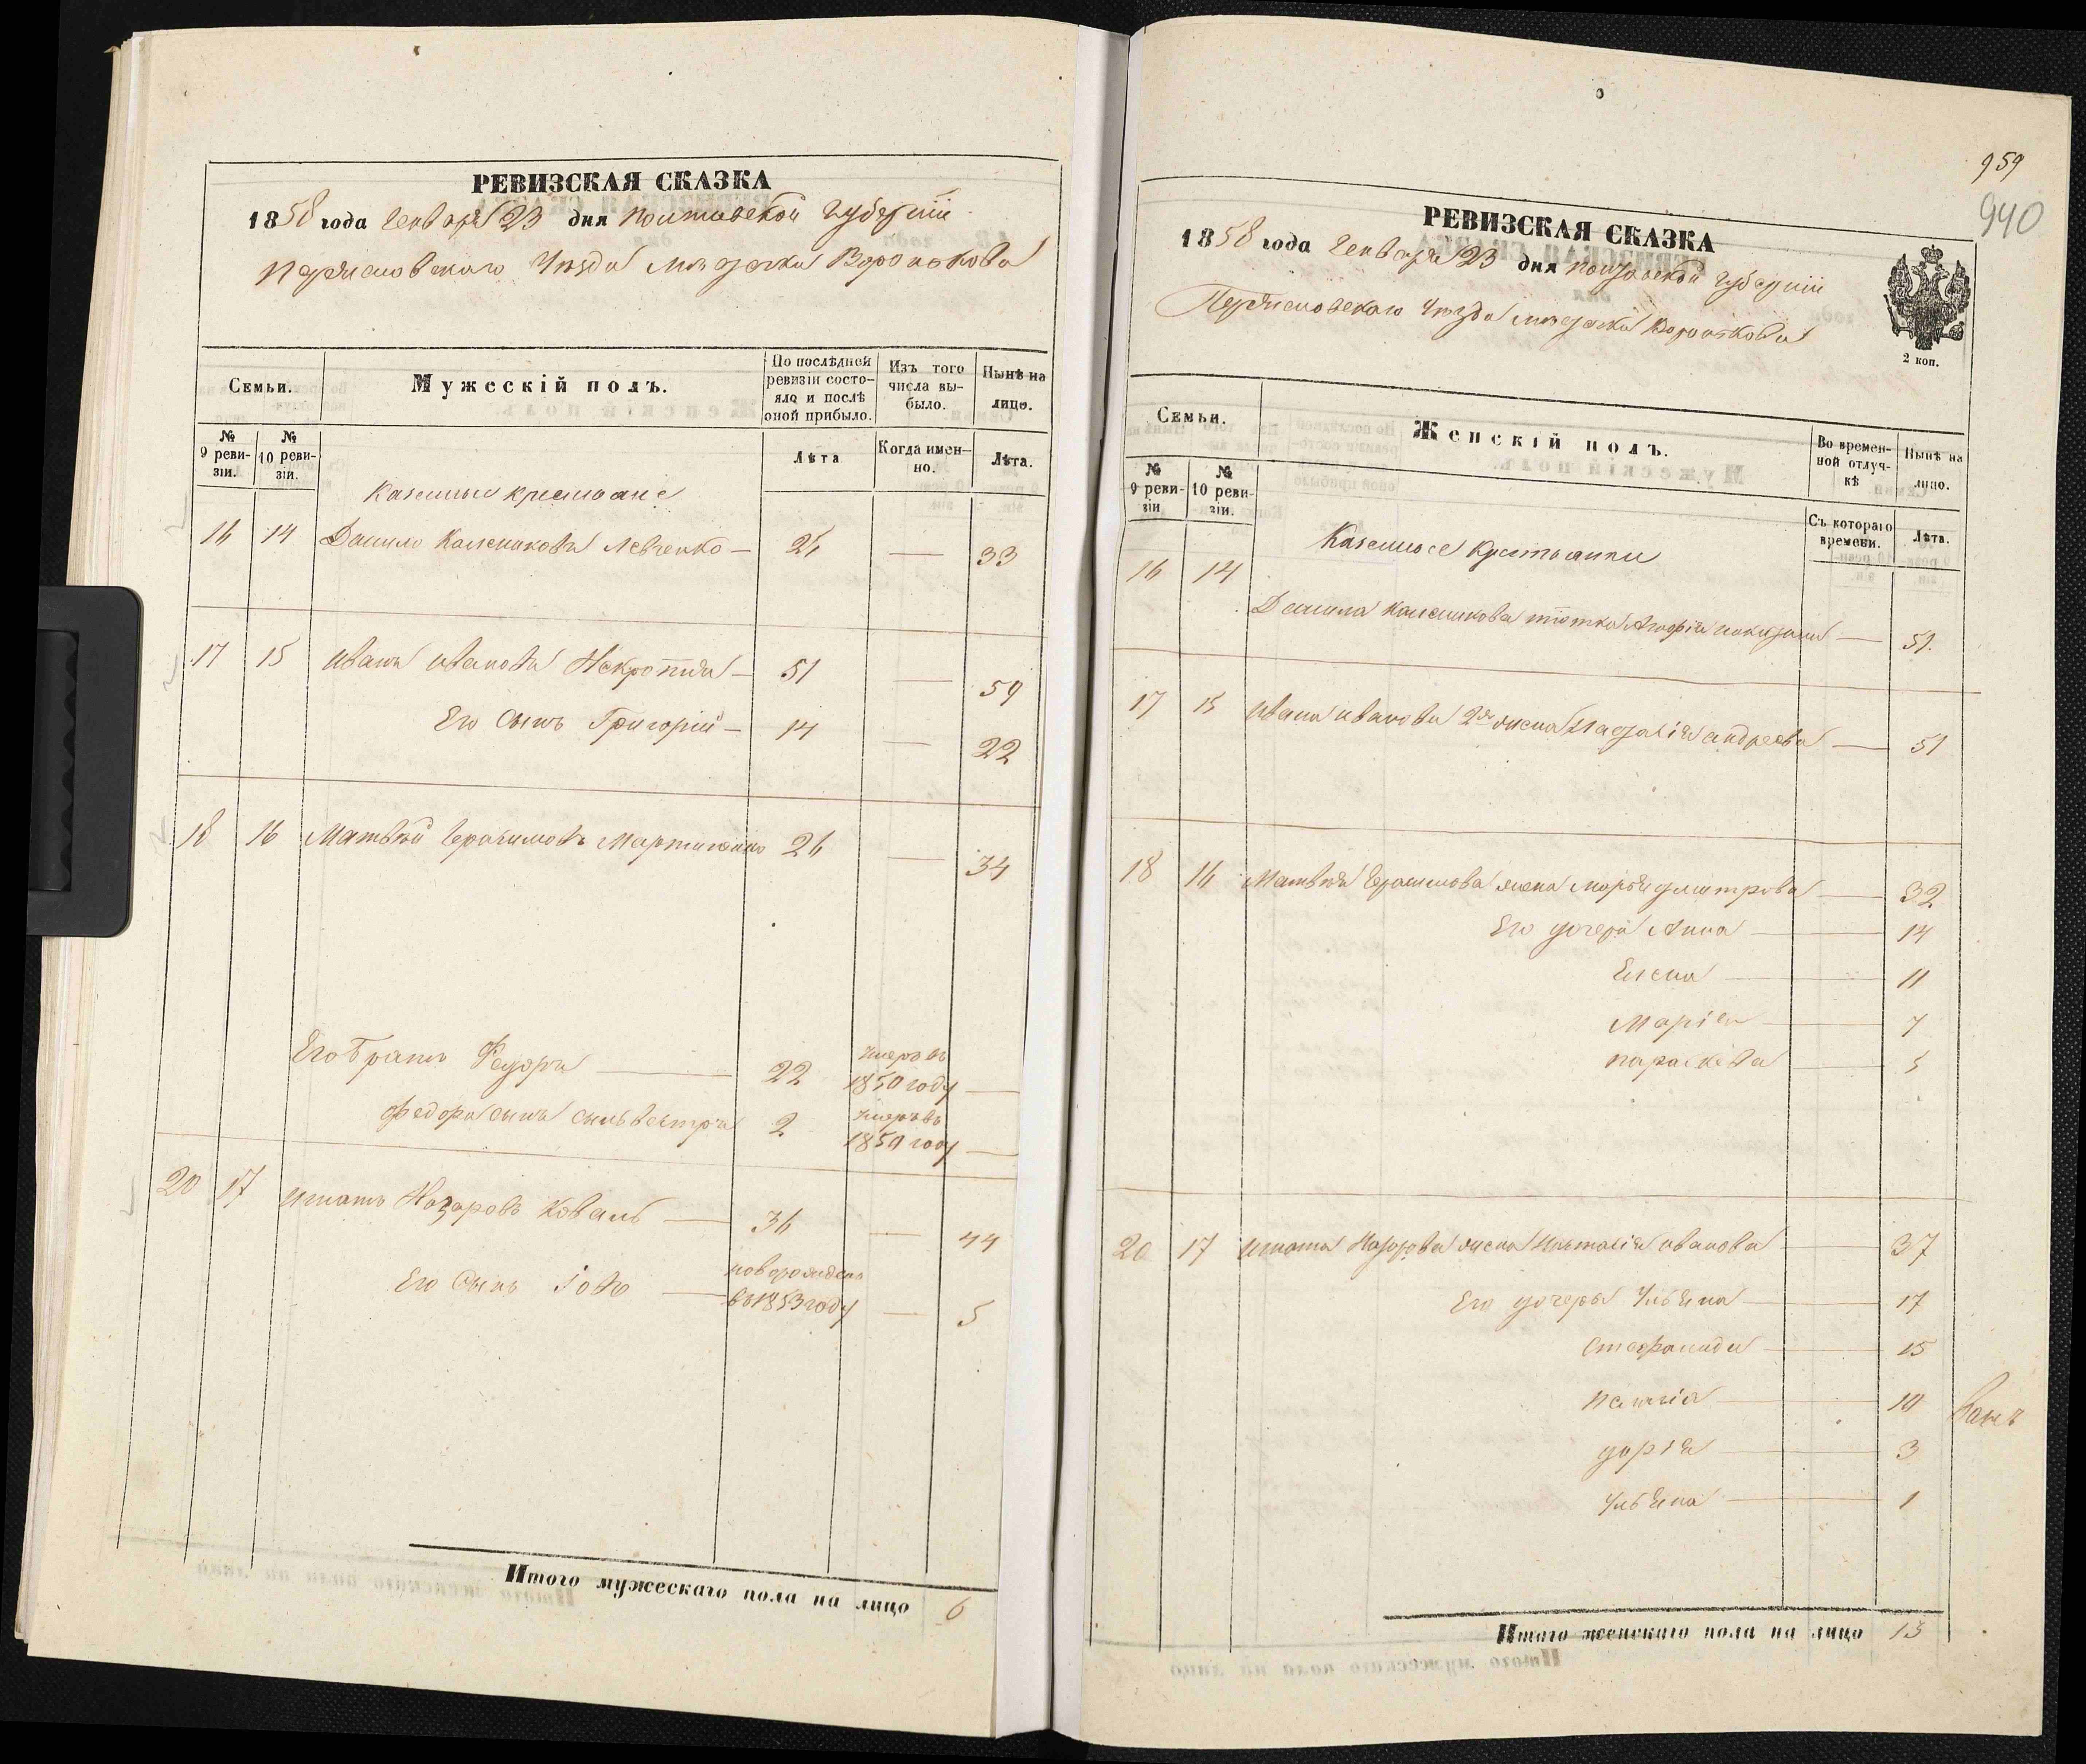 РЕВИЗСКАЯ СКАЗКА
1858 года Генваря 23 дня Полтавской Губерніи
Переяславскаго Уезда местечка Воронкова
Семьи.
Мужескій полъ.
По послѣдней ревизіи состояло и послѣ оной прибыло.
Изъ того числа выбыло.
Нынѣ на лицо.
№ 9 ревизіи.
№ 10 ревизіи.
Лѣта
Когда именно.
Лѣта.
Казенные крестьяне
16 14 Данило Калениковъ Левченко — 25 — 33
17 15 Иванъ Ивановъ — 51 — 59
Его Сынъ Григорій — 14 — 22
18 16 Матвѣй Герасимовъ Мартиненко 26 — 34
Его Братъ Федоръ — 22 умеръ въ 1850 году —
Федора сынъ Сильвестръ 2 умеръ въ 1850 году —
20 17 Игнатъ Назаровъ Коваль — 36 — 44
Его Сынъ Іовъ — новорожденъ въ 1853 году — 5
Итого мужескаго пола на лицо 6
959
940
РЕВИЗСКАЯ СКАЗКА
1858 года Генваря 23 дня Полтавской Губерніи
Переяславскаго Уезда местечка Воронкова
2 коп.
Семьи.
Женскій полъ.
Во временной отлучкѣ
Нынѣ на лицо.
№ 9 ревизіи
№ 10 ревизіи.
Съ котораго времени.
Лѣта.
Казенные Крестьянки
16 14
Данила Каленикова тётка — 51.
17 15 Ивана Иванова 2я жена Наталія Андреева — 51
18 16 Матвѣя Герасимова жена Марья Дмитрова — 32
Его дочери Анна — 14
Елена — 11
Марія — 7
Параскева — 5
20 17 Игната Назарова жена Наталія Иванова — 37
Его дочери Ульяна — 17
Стефанида — 15
— 10
Дарія — 3
Ульяна — 1
Итого женскаго пола на лицо 13